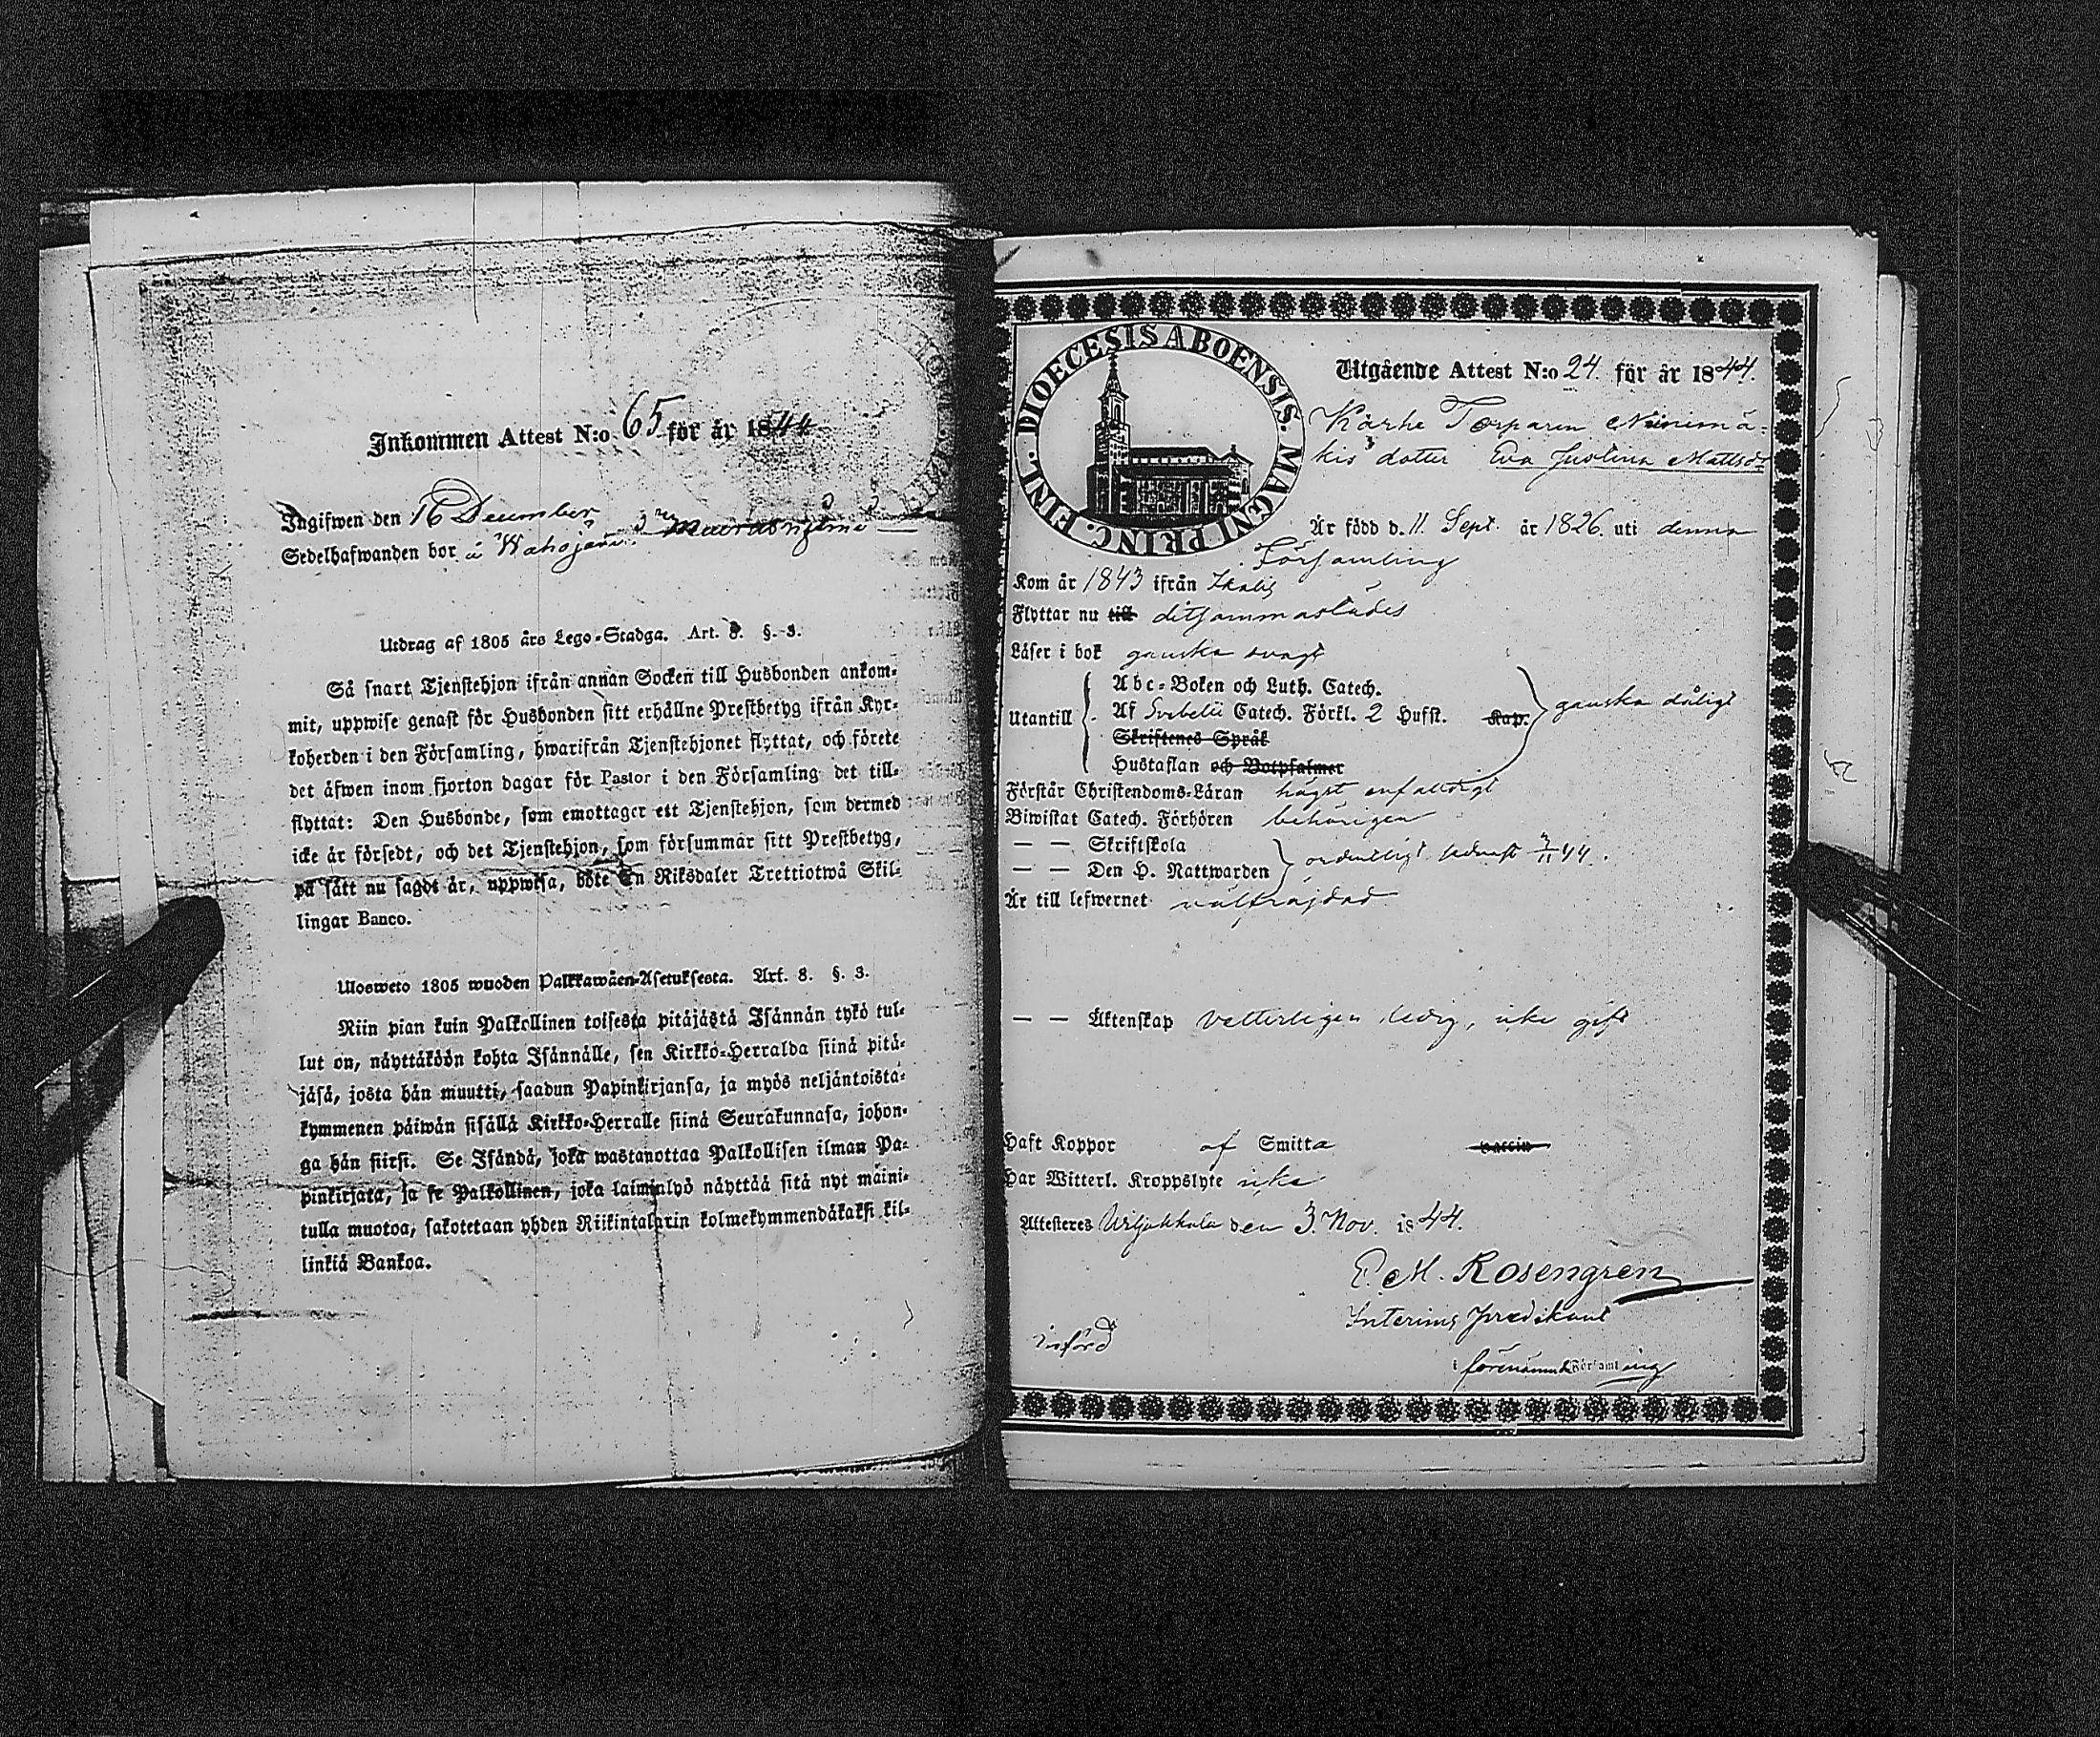 Inkommen Attest N:o 65 för år 1844
Ingifwen den 16 December
Sedelhafwanden bor å Wahojärvi
Utdrag af 1805 års Lego-Stadga. Art. 8. §. 3.
Så snart Tjenstehjon ifrån annan Socken till Husbonden ankom-
mit, uppwise genast för Husbonden sitt erhållne Prestbetyg ifrån Kyr-
koherden i den Församling, hwarifrån Tjenstehjonet flyttat, och förete
det äfwen inom fjorton dagar för Pastor i den Församling det till-
flyttat: Den Husbonde, som emottager ett Tjenstehjon, som dermed
icke är försedt, och det Tjenstehjon, som försummar sitt Prestbetyg,
på sätt nu sagdt är, uppwisa, böte En Riksdaler Trettiotwå Skil-
lingar Banco.
Ulosweto 1805 wuoden Palkkawäen-Asetuksesta. Art. 8. §. 3.
Niin pian kuin Palkollinen toisesta pitäjästä Isännän tykö tul-
lut on, näyttäköön kohta Isännälle, sen Kirkko-Herralda siinä pitä-
jäsä, josta hän muutti, saadun Papinkirjansa, ja myös neljäntoista-
kymmenen päiwän sisällä Kirkko-Herralle siinä Seurakunnasa, johon-
ga hän siirsi. Se Isändä, joka wastanottaa Palkollisen ilman Pa-
pinkirjata, ja se Palkollinen, joka laiminlyö näyttää sitä nyt maini-
tulla muotoa, sakotetaan yhden Riikintalarin kolmekymmendäkaksi kil-
linkiä Bankoa.
DIOECESIS ABOENSIS MAGNI PRINC. FINL.
Utgående Attest N:o 24. för år 1844.
Kärhe Torparen Niinimä-
kis dotter Eva Justina Mattsdr
Är född d. 11 Sept. år 1826. uti denna
Församling
Kom år 1843 ifrån Ikalis
Flyttar nu till ditsammastädes
Läser i bok ganska svagt
Utantill
Abc-Boken och Luth. Catech.
Af Svebelii Catech. Förkl. 2 Hufst. Kap.
Skriftenes Språk
Hustaflan och Botpsalmer
ganska dåligt
Förstår Christendoms-Läran högst enfaldigt
Biwistat Catech. Förhören behörigen
— — Skriftskola
— — Den H. Nattwarden
ordentligt sednast 3/11 44.
Är till lefwernet välfräjdad
— — Äktenskap Vetterligen ledig, icke gift
Haft Koppor af Smitta vaccin
Har Witterl. Kroppslyte icke
Attesteres Wiljakkala den 3. Nov. 1844.
P. M. Rosengren
Interims Predikant
i förenämnde Församling
införd